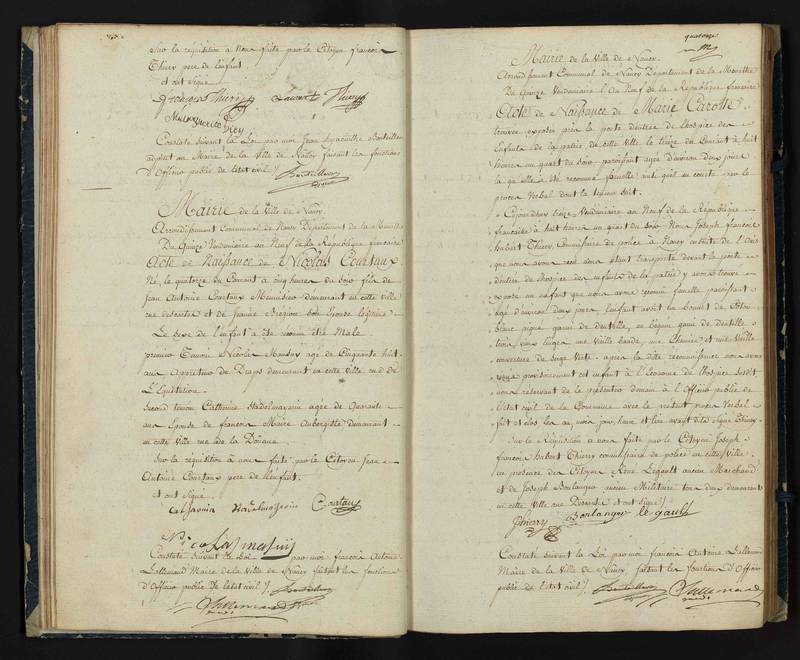 Sur la requisition a nous faite par le Citoyen francois
Thiery pere de l'enfant.
et ont signé
francois Thiery Laurent Thiery
Constaté suivant la Loi par moi Jean hyacinthe Bouteiller
adjoint au Maire de la Ville de Nancy faisant les fonctions
d'Officier public de l'etat civil /.
Mairie de la Ville de Nancy.
Arrondissement Communal de Nancy Département de la Meurthe
Du Quinze Vendemiaire an Neuf de la République française
Acte de Naissance de Nicolas Courtaux
Né, le quatorze du Courant a cinq heures du soir fils de
Jean Antoine Courtaux Menuisier demeurant en cette ville
rue et de Jeanne son Epouse légitime
Le Sexe de l'enfant a été reconnu être Male
premier Temoin Nicolas agé de Cinquante huit
ans Appreteur de Draps demeurant en cette Ville rue de
L'Equitation.
Second temoin Catherine agée de Quarante
ans Epouse de francois Maire Aubergiste demeurant
en cette Ville rue de la Douane.
Sur la réquisition à nous faite par le Citoyen Jean
Antoine Courtaux pere de l'enfant.
et ont signé
Courtaux
Constaté suivant la Loi par moi francois Antoine
Lallemand Maire de la Ville de Nancy faisant les fonctions
d'Officier public de l'etat civil /.
Lallemand
quatorze
Mairie de la Ville de Nancy.
Arrondissement Communal de Nancy Departement de la Meurthe
Du Quinze Vendemiaire l'An Neuf de la République française
Acte de Naissance de Marie Carotte
trouvée exposée près la porte d'entrée de l'hospice des
Enfants de la patrie de cette Ville le treize du Courant à huit
heures un quart du soir paroissant agée d'environ deux jours
la quelle a été reconnue femelle ainsi qu'il en conste par le
procès Verbal dont la teneur suit.
Cejourd'huy treize Vendemiaire an Neuf de la République
française à huit heures un quart du soir Nous Joseph françois
hubert Thiery Commissaire de police a Nancy ensuite de l'avis
que nous avons reçu nous étant transporté devant la porte
d'entrée de l'hospice des enfants de la patrie y avons trouvé
exposé un enfant que nous avons reconnu femelle paroissant
agé d'environ deux jours l'enfant avoit un bonnet de
blanc piqué garni de dentelle, un beguin garni de dentelle
trois une Vieille bande, une Chemise et une Vieille
couverture de Serge Verte. après la dite reconnoissance nous avons
provisoirement cet enfant à l'Econome de l'hospice susdit
nous reservant de le présenter demain à l'Officier public de
l'état civil de la Commune avec le présent procès Verbal
fait et clos les an, mois, jour, heure et lieu avant dits Signé Thiery.
Sur la Réquisition a nous faite par le Citoyen Joseph
francois hubert Thiery commissaire de police en cette Ville.
en presence des Citoyens René Legault ancien Marchand
et de Joseph Boulanger ancien Militaire tous deux demeurant
en cette Ville et ont signé /.
Thiery Boulanger le gault
Constaté suivant la Loi par moi francois Antoine Lallemand
Maire de la Ville de Nancy, faisant les fonctions d'Officier
public de l'état civil /.
Lallemand